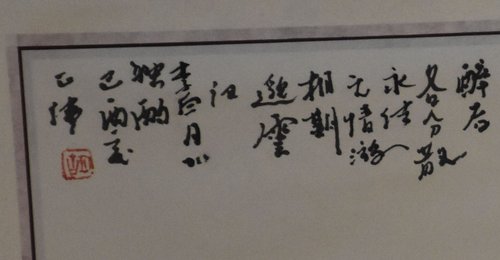 醉后
各分散
永结
无情游
相期
邈雲
汉
李白月下
独酌